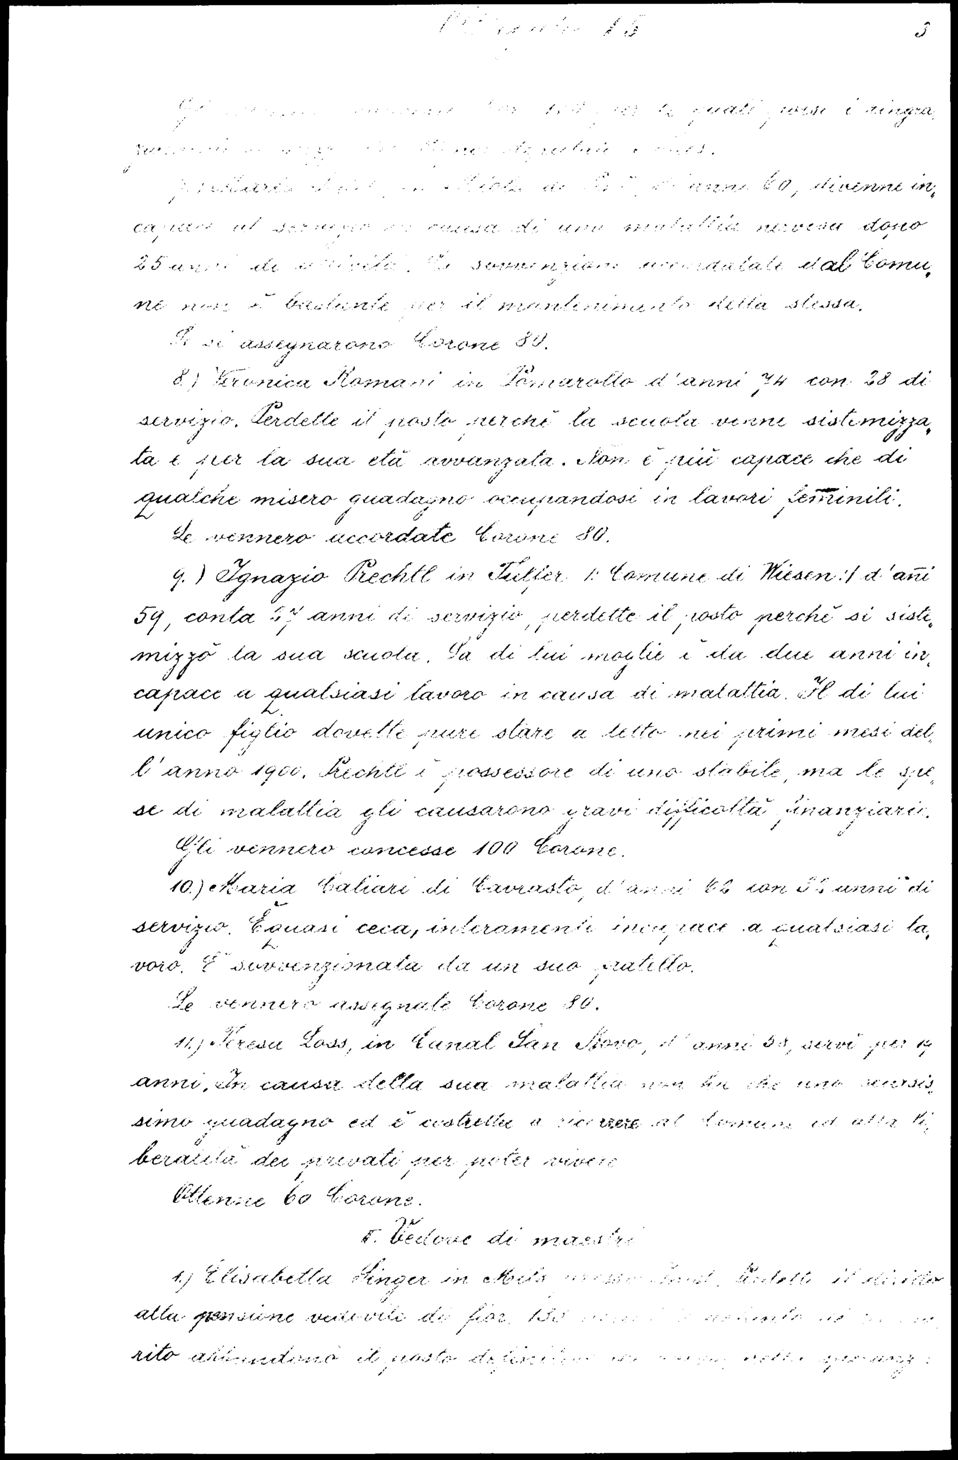 15 3
per quali porse i ringra,
d'anni 60, divenne in,
capace al servizio in causa di una malattia nervosa dopo
25 anni di attività. La sovvenzione accordatale dal Comu,
ne non è bastante per il mantenimento della stessa.
Le si assegnarono Corone 80.
8.) Veronica Romani in Pomarollo d'anni 74 con 28 di
servizio. Perdette il posto perchè la scuola venne sistemizza,
ta e per la sua età avvanzata. Non è più capace che di
qualche misero guadagno occupandosi in lavori feminili.
Le vennero accordate Corone 80.
9.) Ignazio Prechtl in Tulfer /: Comune di Wiesen :/ d'ani
59, conta 27 anni di servizio, perdette il posto perchè si siste,
mizzò la sua scuola. La di lui moglie è da due anni in,
capace a qualsiasi lavoro in causa di malattia. Il di lui
unico figlio dovette pure stare a letto nei primi mesi del,
l'anno 1900. Prechtl è possessore di uno stabile, ma le spe,
se di malattia gli causarono gravi difficoltà finanziarie.
Gli vennero concesse 100 Corone.
10.) Maria Caliari di Cavrasto, d'anni 62 con 32 anni di
servizio. È quasi ceca, interamente incapace a qualsiasi la,
voro. È sovvenzionata da un suo fratello.
Le vennero assegnate Corone 80.
11.) Teresa Loss, in Canal San Bovo, d'anni 58, servì per 19
anni. In causa della sua malattia non ha che uno scarsis,
simo guadagno ed è costretta a ricorrere al Comune ed alla li,
beralità dei privati per poter vivere
Ottenne 60 Corone.
Vedove di maestri
1.) Elisabetta Singer in Mils presso Imst. Perdette il diritto
alla pensione vedovile di fior. 133
rito abbandonò il posto definitivo